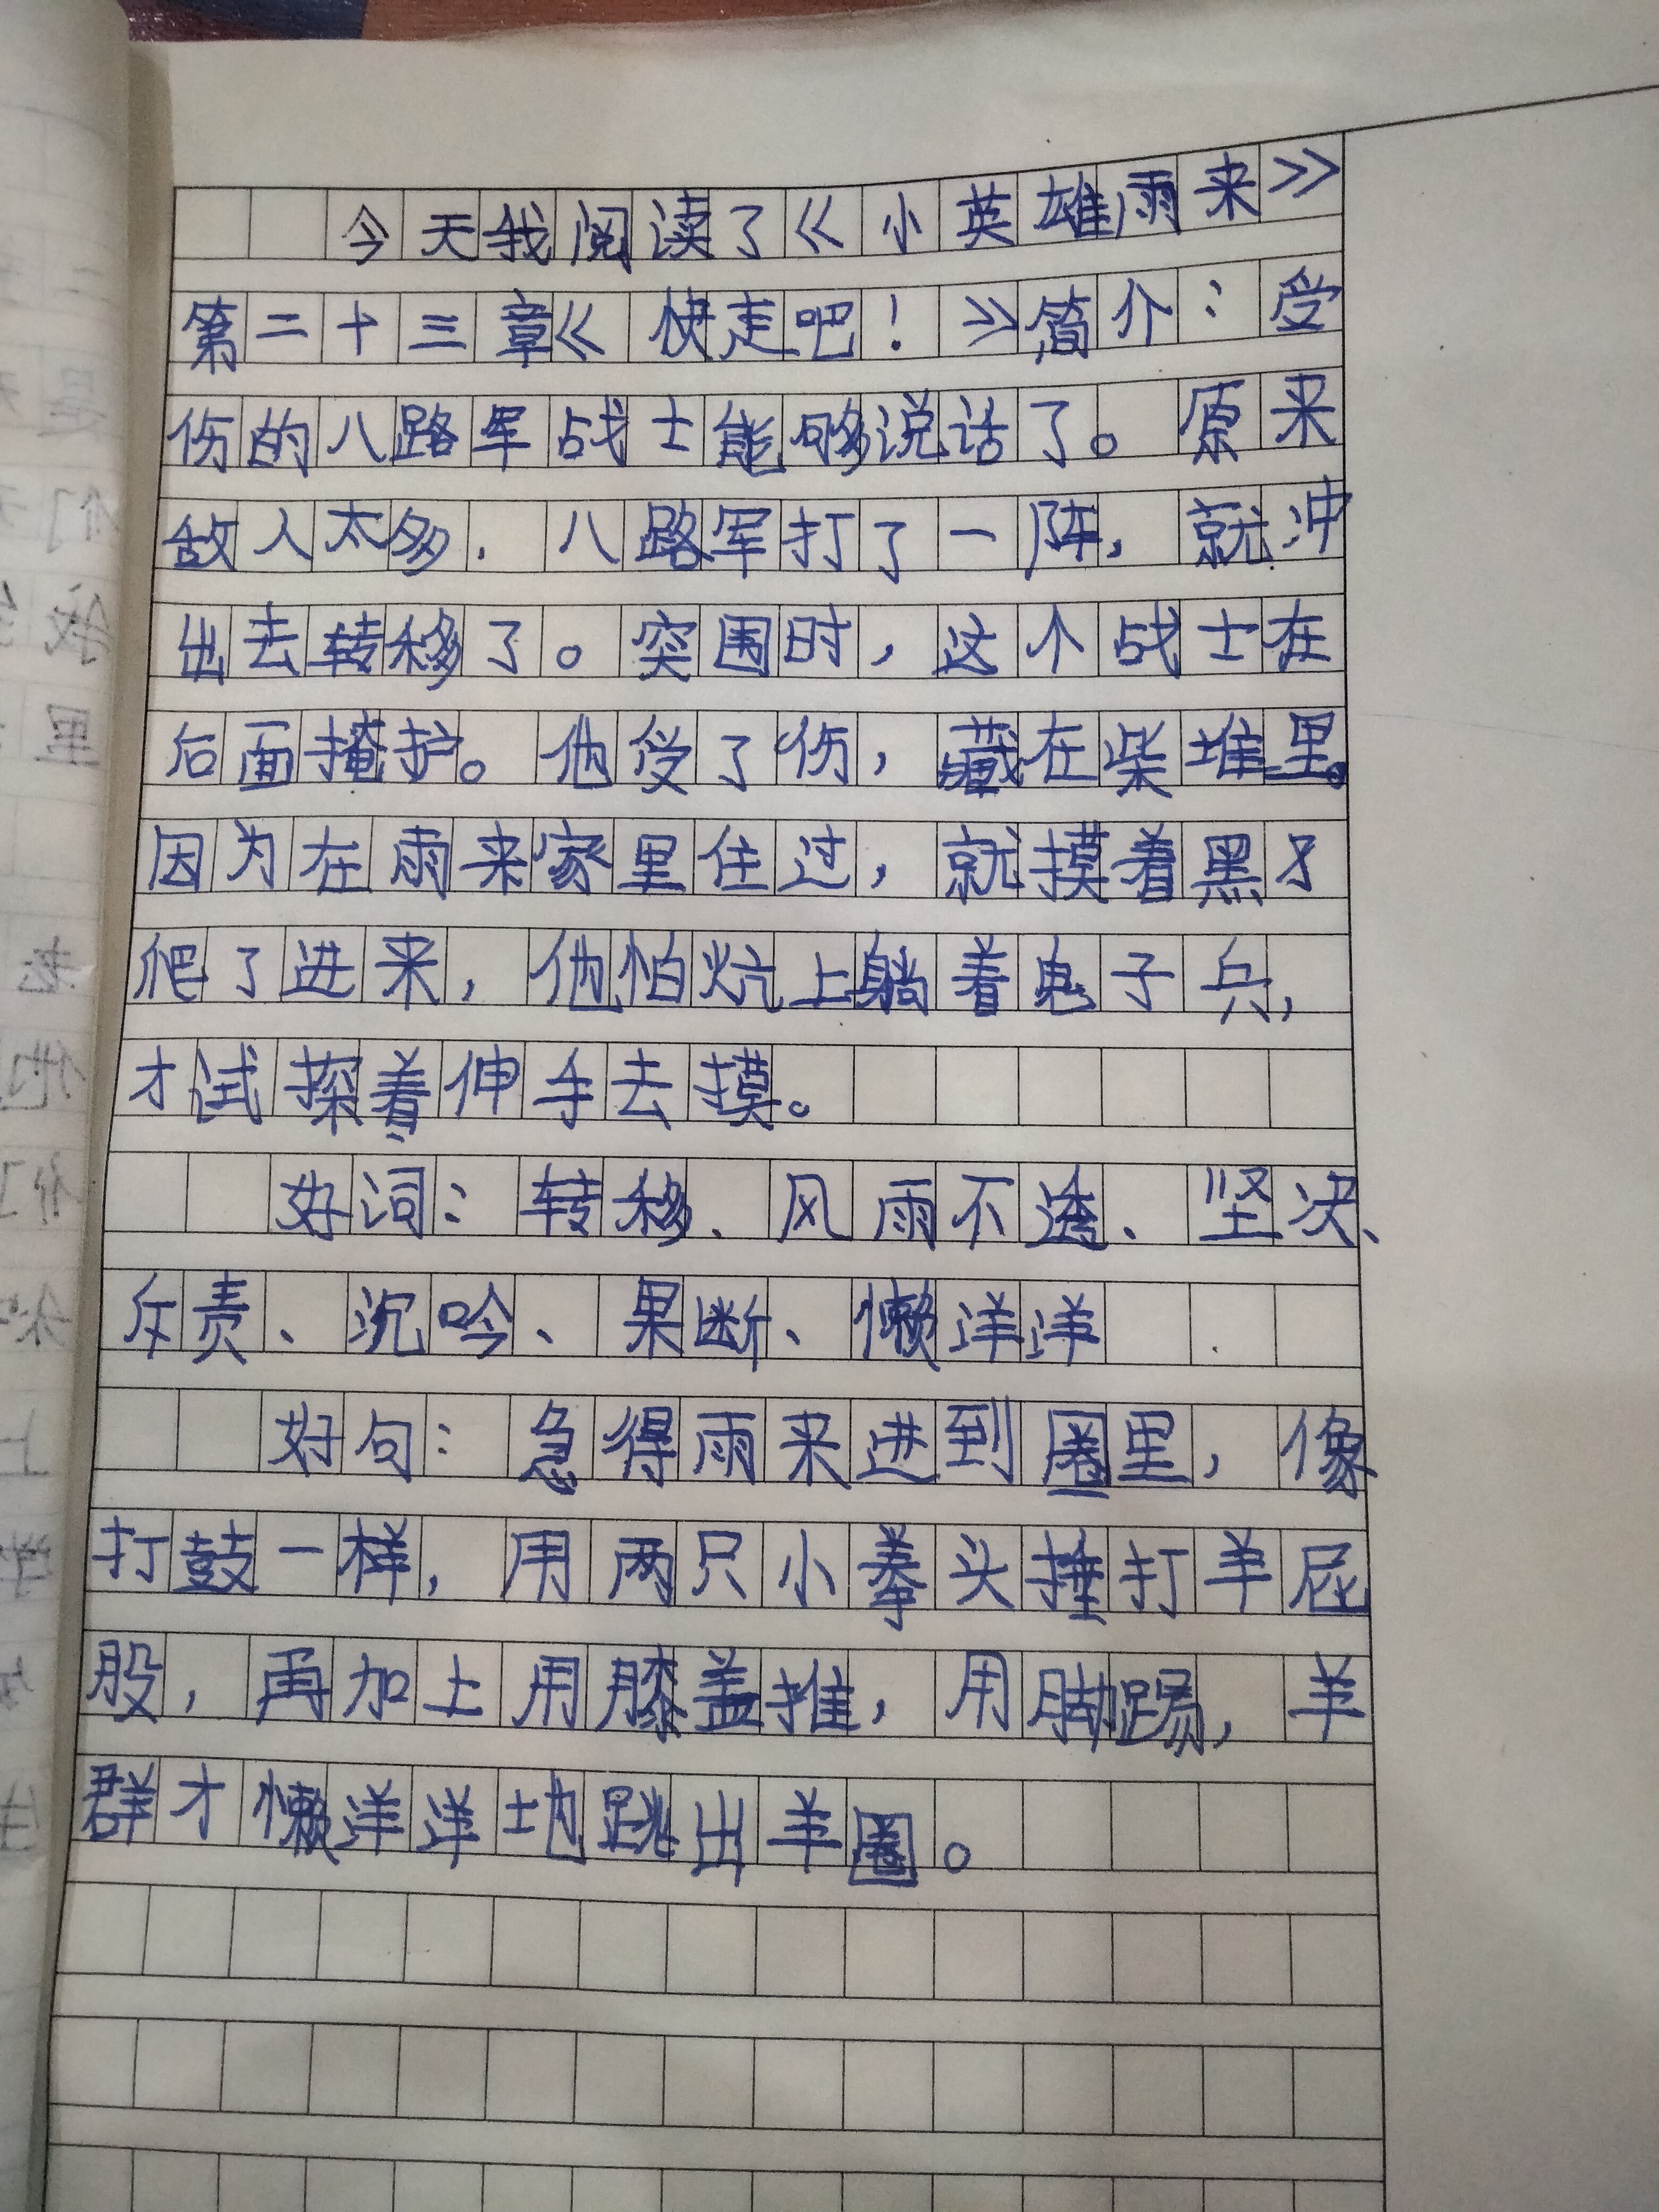 今天我阅读了《小英雄雨来》
第二十三章《快走吧！》简介：受
伤的八路军战士能够说话了。原来
敌人太多，八路军打了一阵，就冲
出去转移了。突围时，这个战士在
后面掩护。他受了伤，藏在柴堆里。
因为在雨来家里住过，就摸着黑才
爬了进来，他怕炕上躺着鬼子兵，
才试探着伸手去摸。
好词：转移、风雨不透、坚决、
斥责、沉吟、果断、懒洋洋
好句：急得雨来进到圈里，像
打鼓一样，用两只小拳头捶打羊屁
股，再加上用膝盖推，用脚踢，羊
群才懒洋洋地跳出羊圈。